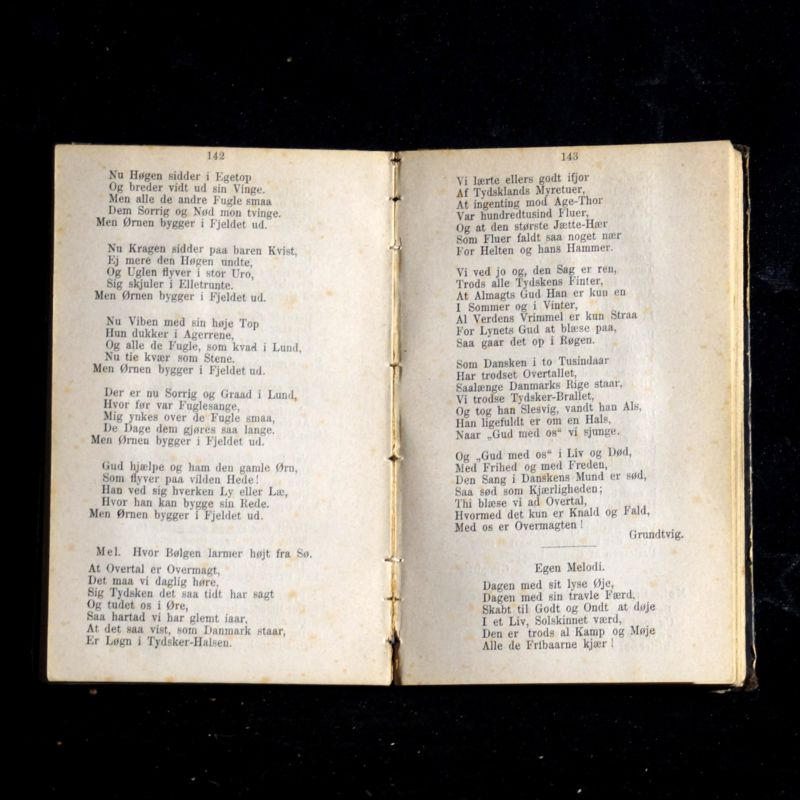 142
Nu Høgen sidder i Egetop
Og breder vidt ud sin Vinge.
Men alle de andre Fugle smaa
Dem Sorrig og Nød mon tvinge.
Men Ørnen bygger i Fjeldet ud.
Nu Kragen sidder paa baren Kvist,
Ej mere den Høgen undte,
Og Uglen flyver i stor Uro,
Sig skjuler i Elletrunte.
Men Ørnen bygger i Fjeldet ud.
Nu Viben med sin høje Top
Hun dukker i Agerrene,
Og alle de Fugle, som kvad i Lund,
Nu tie kvær som Stene.
Men Ørnen bygger i Fjeldet ud.
Der er nu Sorrig og Graad i Lund,
Hvor før var Fuglesange,
Mig ynkes over de Fugle smaa,
De Dage dem gjøres saa lange.
Men Ørnen bygger i Fjeldet ud.
Gud hjælpe og ham den gamle Ørn,
Som flyver paa vilden Hede!
Han ved sig hverken Ly eller Læ,
Hvor han kan bygge sin Rede.
Men Ørnen bygger i Fjeldet ud.
Mel. Hvor Bølgen larmer højt fra Sø.
At Overtal er Overmagt,
Det maa vi daglig høre,
Sig Tydsken det saa tidt har sagt
Og tudet os i Øre,
Saa hartad vi har glemt iaar,
At det saa vist, som Danmark staar,
Er Løgn i Tydsker-Halsen.
143
Vi lærte ellers godt ifjor
Af Tydsklands Myretuer,
At ingenting mod Age-Thor
Var hundredtusind Fluer,
Og at den største Jætte-Hær
Som Fluer faldt saa noget nær
For Helten og hans Hammer.
Vi ved jo og, den Sag er ren,
Trods alle Tydskens Finter,
At Almagts Gud Han er kun en
I Sommer og i Vinter,
Al Verdens Vrimmel er kun Straa
For Lynets Gud at blæse paa,
Saa gaar det op i Røgen.
Som Dansken i to Tusindaar
Har trodset Overtallet,
Saalænge Danmarks Rige staar,
Vi trodse Tydsker-Brallet,
Og tog han Slesvig, vandt han Als,
Han ligefuldt er om en Hals,
Naar „Gud med os“ vi sjunge.
Og „Gud med os“ i Liv og Død,
Med Frihed og med Freden,
Den Sang i Danskens Mund er sød,
Saa sød som Kjærligheden;
Thi blæse vi ad Overtal,
Hvormed det kun er Knald og Fald,
Med os er Overmagten!
Grundtvig.
Egen Melodi.
Dagen med sit lyse Øje,
Dagen med sin travle Færd,
Skabt til Godt og Ondt at døje
I et Liv, Solskinnet værd,
Den er trods al Kamp og Møje
Alle de Fribaarne kjær!